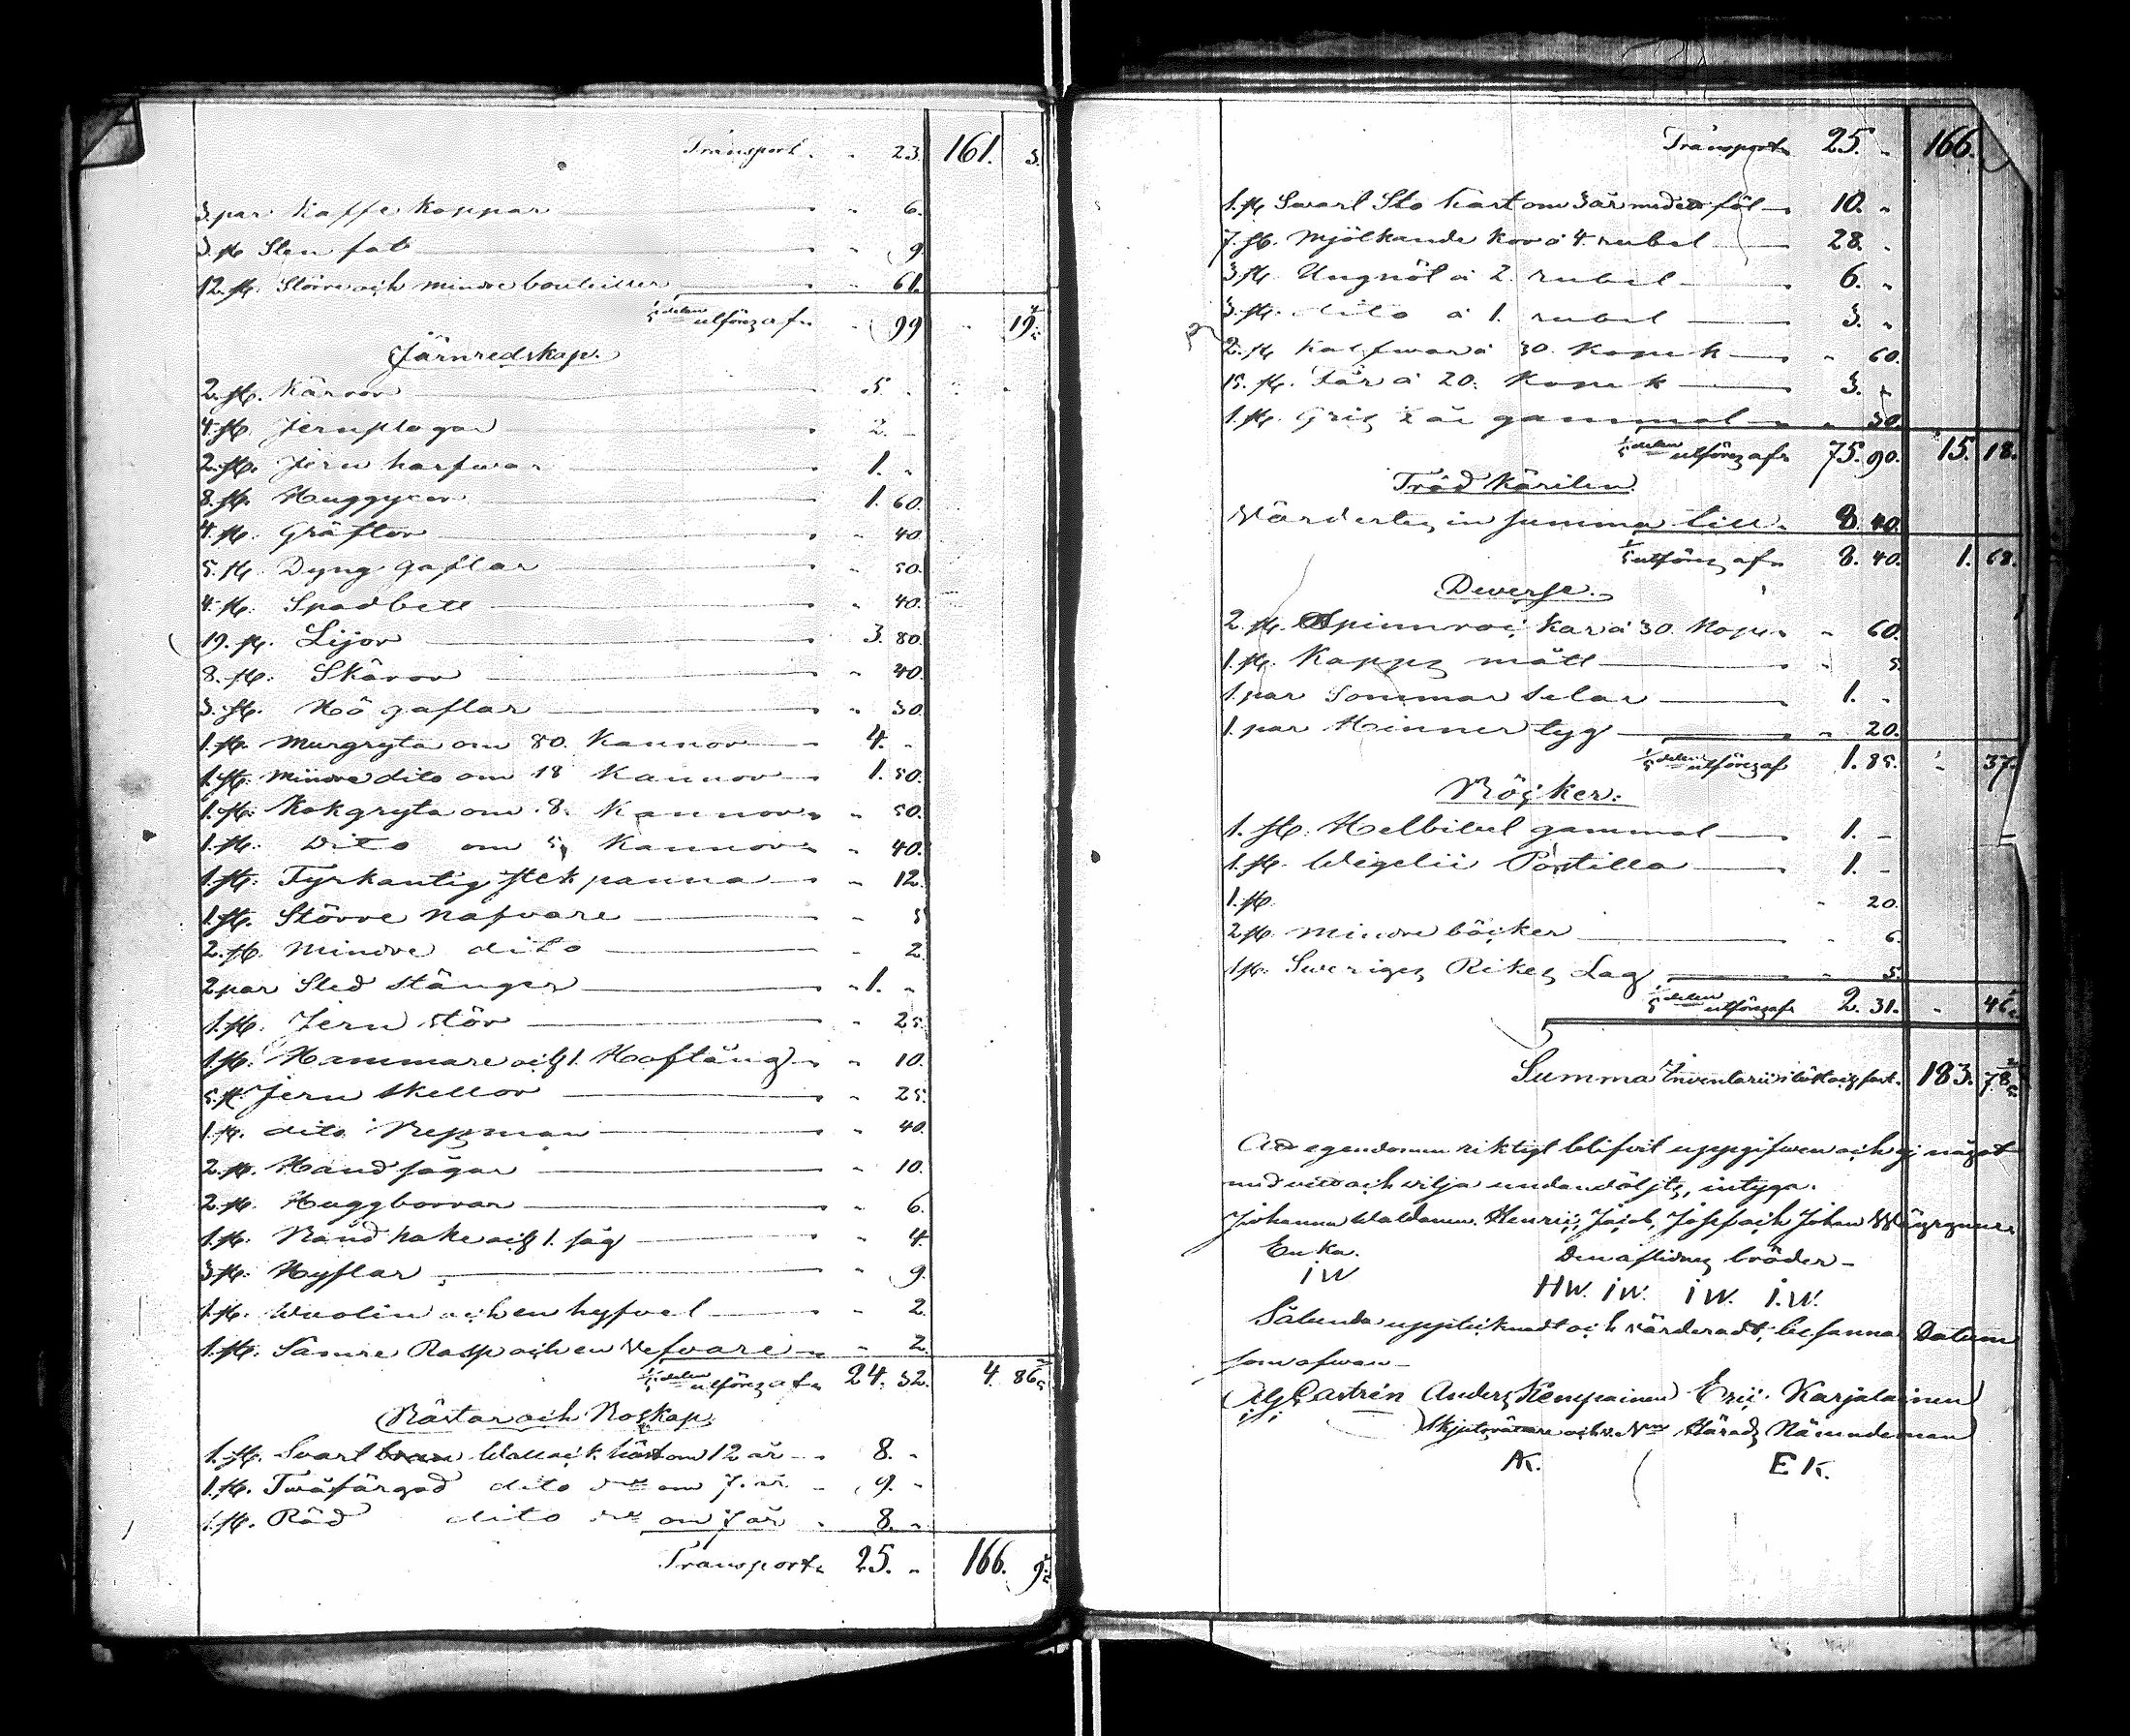 Transport " 23. 161. 3.
3. par Kaffe Koppar " 6.
3. st. Sten fat " 9
12. st. Större och mindre bouteiller " 61.
1/5 delen utföres af " 99 " 19 4/5
Järnredskap.
2. st. Käror 5 "
4. st. Jernplogar 2. "
2. st. Jern harfwar 1. "
8. st. Huggyxor 1. 60.
4. st. Gräftor " 40
5. st. Dyng gaflar " 50.
4. st. Spadbett " 40.
19. st. Lijor 3. 80.
8. st. Skäror " 40.
3. st. Hö gaflar " 30.
1. st. Murgryta om 80. Kannor 4. "
1. st. mindre dito om 18 Kannor 1. 50.
1. st. Kokgryta om 8. Kannor " 50.
1. st. Dito om 5 Kannor " 40.
1. st. Fyrkantig stek panna " 12.
1. st. Större nafvare " 5
2. st. mindre dito " 2.
2 par Sled stänger 1. "
1. st. Jern stör " 25.
1. st. Hammare och 1. Hoftång " 10.
5. st. Jern skellor " 25.
1. st. dito Bessman " 40.
2. st. Hand sågar " 10.
2. st. Huggborrar " 6.
1. st. Band hake och 1. såg " 4.
3. st. Hyflar " 9.
1. st. och en hyfvel " 2.
1. st. Sämre Rasp och en Nafvare " 2.
1/5 delen utföres af 24. 32. 4. 86 2/5
Hästar och Boskap.
1. st. Svart Wallack häst om 12 år 8. "
1. st. Twåfärgad dito om 7. år 9. "
1. st. Röd dito om 7 år 8. "
Transport 25. " 166. 9
Transport 25. " 166.
1. st. Svart Sto häst om 3 år med ett föl 10. "
7. st. Mjölkande Kor á 4. rubel 28. "
3 st. Ungnöt á 2. rubel 6. "
3. st. dito á 1. rubel 3. "
2. st. Kalfwar á 30. Kopek " 60.
15. st. Får á 20. Kopek 3. "
1. st. Gris år gammal " 30.
1/5 delen utföres af 75. 90. 15. 18.
Träd Kärilen
Värdertes in summa till 8. 40.
1/5 utföres af 8. 40. 1. 68.
Diverse.
2. st. Spinnrockar á 30. Kop. " 60.
1. st. Kapps mått " 5
1. par Sommar Selar 1. "
1. par Hinner tyg " 20.
1/5 delen utföres af 1. 85. " 37.
Böcker.
1. st. Helbibel gammal 1. "
1. st. Wigelii Postilla 1. "
1. st. " 20.
2 st. mindre böcker " 6.
1 st. Sweriges Rikes Lag " 5.
1/5 delen utföres af 2. 31. " 46
Summa Inventarii i löst och fast. 183. 78
Att egendomen riktigt blifvit uppgifwen och ej något
med vett och vilja undandöljts, intyga.
Johanna Henric, Jacob, Josef och Johan
Enka. Den aflidnes bröder
IW HW. IW. IW. I.W.
Sålunda uppteknadt och värderadt, befanns Datum
som ofwan
Castrén Anders Kemppainen Eric Karjalainen
Härads Nämndeman
AK. EK.